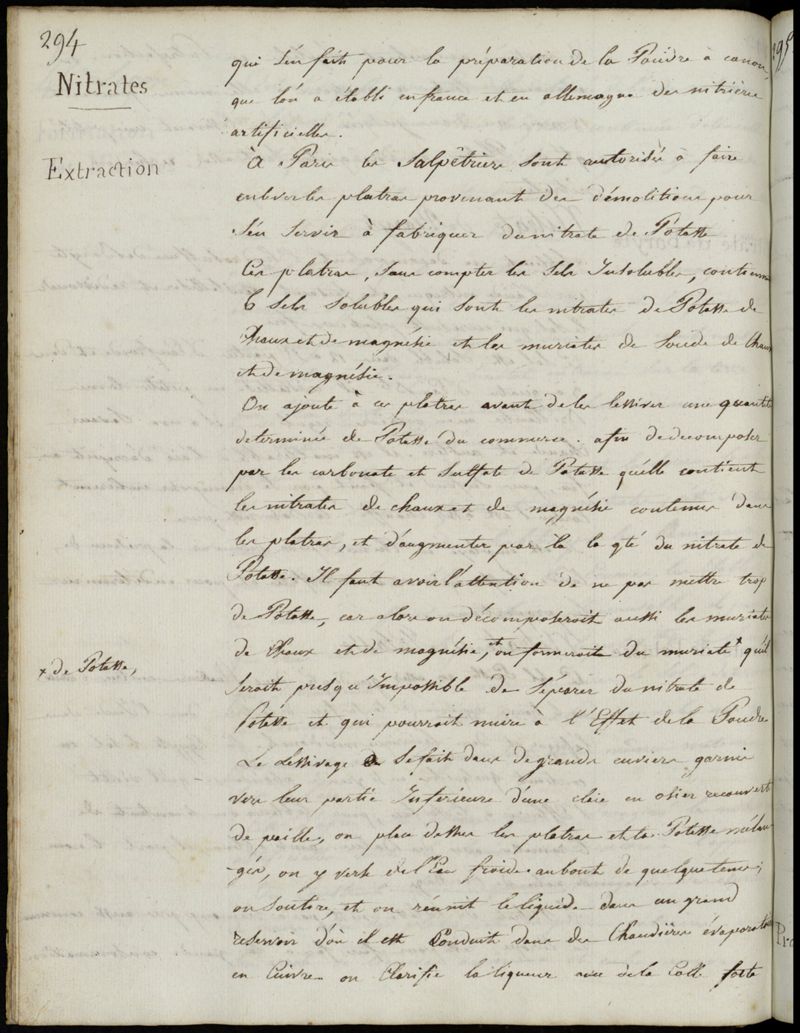 294
Nitrates
Extraction
qui s'en fait pour la préparation de la Poudre à canon,
que l'on a établi en france et en allemagne des nitrière
artificielles.
À Paris les Salpêtriers sont autorisés à faire
enlever les platras provenant des démolitions pour
s'en servir à fabriquer du nitrate de Potasse
Ces platras, sans compter les Sels Insolubles, contiennent
6 Sels Solubles qui sont les nitrates de Potasse de
Chaux et de magnésie et les muriates de Soude de Chaux
et de magnésie.
On ajoute à ces platras avant de les lessiver une quantité
determinée de Potasse du commerce. afin de decomposer
par les carbonate et Sulfate de Potasse qu'elle contient
les nitrates de chaux et de magnésie contenus dans
les platras, et d'augmenter par là la qté du nitrate de
Potasse. Il faut avoir l'attention de ne pas mettre trop
de Potasse, car alors on décomposeroit aussi les muriates
de Chaux et de magnésie, et on formeroit du muriate x qu'il
x de Potasse,
seroit presqu'Impossible de Séparer du nitrate de
Potasse et qui pourroit nuire à l'Effet de la Poudre
Le Lessivage se fait dans de grands cuviers garnis
vers leur partie Inférieure d'une claie en osier recouvert
de paille, on place dessus les platras et la Potasse mélan
gés, on y verse de l'Eau froide. au bout de quelque tems,
on soutire, et on réunit le liquide dans un grand
reservoir d'où il est Conduit dans des Chaudières évaporatoires
en Cuivre on Clarifie la liqueur avec de la Colle forte
295